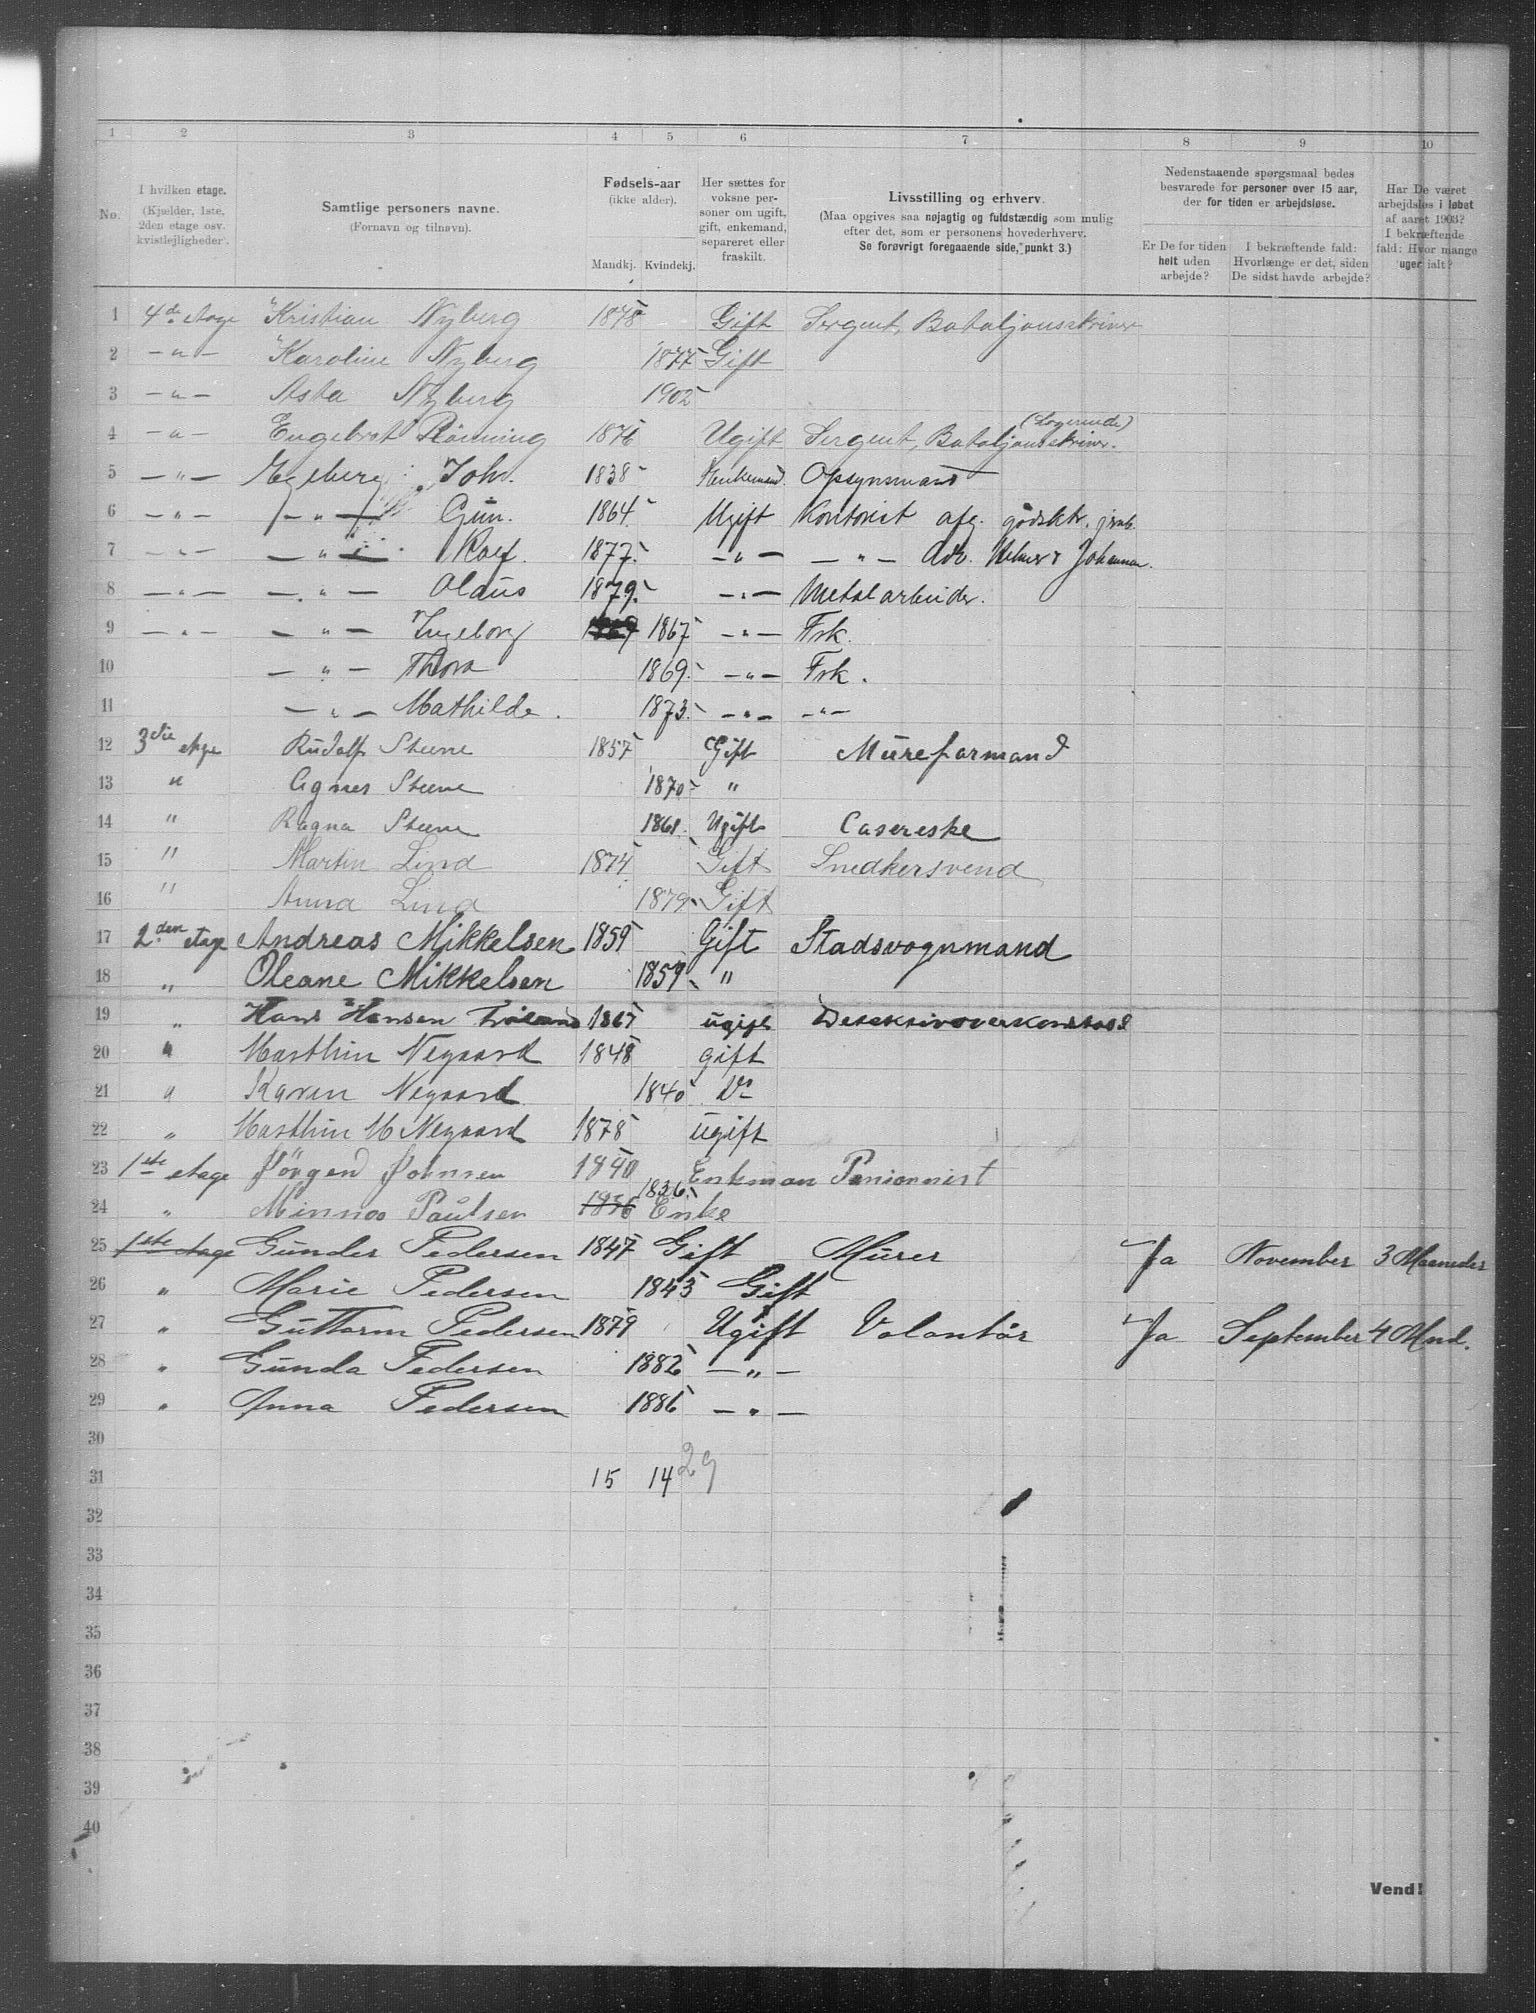 1 2 3 4 5 6 7 8 9 10
No.
I hvilken etage.
(Kjælder, 1ste,
2den etage osv.
kvistlejligheder.
Samtlige personers navne.
(Fornavn og tilnavn).
Fødsels-aar
(ikke alder).
Mandkj. Kvindekj.
Her sættes for
voksne per-
soner om ugift,
gift, enkemand,
separeret eller
fraskilt.
Livsstilling og erhverv.
(Maa opgives saa nøjagtig og fuldstændig som mulig
efter det, som er personens hovederhverv.
Se forøvrigt foregaaende side, punkt 3.)
Nedenstaaende spørgsmaal bedes
besvarede for personer over 15 aar,
der for tiden er arbejdsløse.
Er De for tiden
helt uden
arbejde?
I bekræftende fald:
Hvorlænge er det, siden
De sidst havde arbejde?
Har De været
arbejdsløs i løbet
af aaret 1903?
I bekræftende
fald: Hvor mange
uger ialt?
1 4de etage Kristian Nyberg 1878 Gift Sergent, Bataljonsskriver
2 - " - Karoline Nyberg 1877 Gift
3 - " - Asta Nyberg 1902
4 - " - Engebret Rönning 1876 Ugift Sergent, Bataljonsskriver. (Logerende)
5 - " - Egeberg Joh. 1838 Enkemand. Opsynsmand
6 - " - - " - Gun. 1864 Ugift Kontorist afg.
7 - " - - " - Rolf. 1877. - " - - " - Adv.
8 - " - - " - Olaus 1879. - " - Metalarbeider.
9 - " - - " - Ingeborg 1867 - " - Frk.
10 - " - Thora 1869. - " - Frk.
11 - " - Mathilde. 1873. - " - - " -
12 3die etage Rudolf Steene 1857 Gift Mureformand
13 " Agnes Steene 1870 "
14 " Ragna Steene 1861. Ugift Casereske
15 " Martin Lind 1874 Gift Snedkersvend
16 " Anna Lind 1879 Gift
17 2den etage Andreas Mikkelsen 1859 Gift Stadsvognmand
18 " Oleane Mikkelsen 1859 "
19 " Hans Hansen 1865 ugift
20 " Marthin Negaard 1848 gift
21 " Karen Negaard 1840 Do
22 " Marthin M Negaard 1878 ugift
23 1ste etage Jörgen Johnsen 1840 Enkman Pensionist
24 " Minnoa Paulsen 1836 1836. Enke
25 1ste etage Gunder Pedersen 1847 Gift Murer Ja November 3 Maaneder
26 " Marie Pedersen 1843 Gift
27 " Guttorm Pedersen 1879 Ugift Volontör Ja September 4 Mnd.
28 " Gunda Pedersen 1882 - " -
29 " Anna Pedersen 1886 - " -
30
31 15 14 29
32
33
34
35
36
37
38
39
40
Vend!